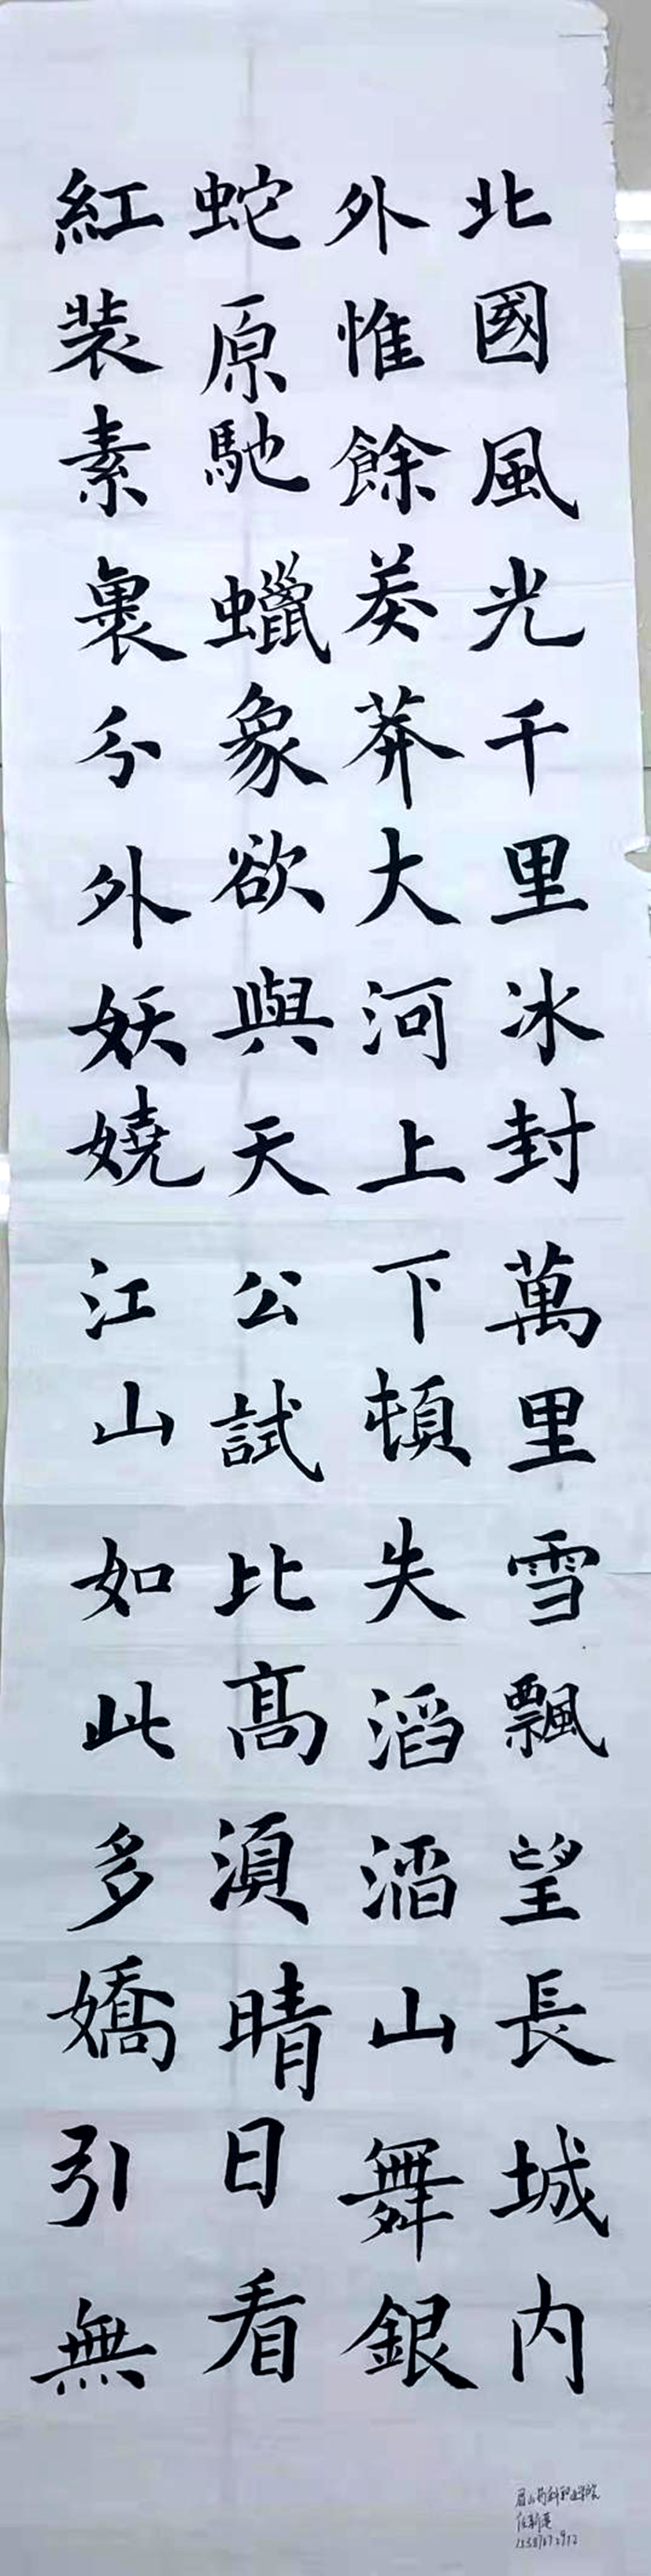 北國風光千里冰封萬里雪飄望長城内
外惟餘莽莽大河上下頓失滔滔山舞銀
蛇原馳蠟象欲與天公試比髙湏晴日看
紅装素裹分外妖嬈江山如此多嬌引無
眉山药科职业学院